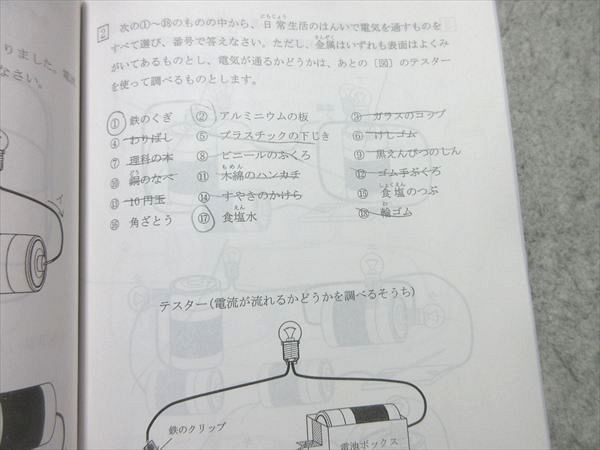 りました。電池
なさい。
2 次の①〜⑱のものの中から、日常生活のはんいで電気を通すものを
すべて選び、番号で答えなさい。ただし、金属はいずれも表面はよくみ
がいてあるものとし、電気が通るかどうかは、あとの〔図〕のテスター
を使って調べるものとします。
① 鉄のくぎ ② アルミニウムの板 ③ ガラスのコップ
④ わりばし ⑤ プラスチックの下じき ⑥ けしゴム
⑦ 理科の本 ⑧ ビニールのふくろ ⑨ 黒えんぴつのしん
⑩ 銅のなべ ⑪ 木綿のハンカチ ⑫ ゴム手ぶくろ
⑬ 10円玉 ⑭ すやきのかけら ⑮ 食塩のつぶ
⑯ 角ざとう ⑰ 食塩水 ⑱ 輪ゴム
テスター(電流が流れるかどうかを調べるそうち)
鉄のクリップ
電池ボックス